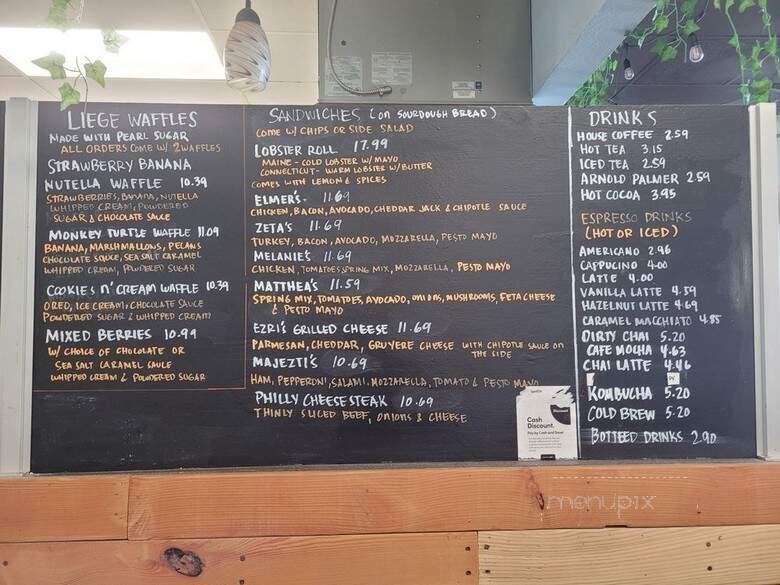 LIEGE WAFFLES
MADE WITH PEARL SUGAR
ALL ORDERS COME W/ 2 WAFFLES
STRAWBERRY BANANA
NUTELLA WAFFLE 10.39
STRAWBERRIES, BANANA, NUTELLA
WHIPPED CREAM, POWDERED
SUGAR & CHOCOLATE SAUCE
MONKEY TURTLE WAFFLE 11.09
BANANA, MARSHMALLOWS, PECANS
CHOCOLATE SAUCE, SEA SALT CARAMEL
WHIPPED CREAM, POWDERED SUGAR
COOKIES N' CREAM WAFFLE 10.39
OREO, ICE CREAM, CHOCOLATE SAUCE
POWDERED SUGAR & WHIPPED CREAM
MIXED BERRIES 10.99
W/ CHOICE OF CHOCOLATE OR
SEA SALT CARAMEL SAUCE
WHIPPED CREAM & POWDERED SUGAR
SANDWICHES (ON SOURDOUGH BREAD)
COME W/ CHIPS OR SIDE SALAD
LOBSTER ROLL 17.99
MAINE - COLD LOBSTER W/ MAYO
CONNECTICUT - WARM LOBSTER W/ BUTTER
COMES WITH LEMON & SPICES
ELMER'S - 11.69
CHICKEN, BACON, AVOCADO, CHEDDAR JACK & CHIPOTLE SAUCE
ZETA'S 11.69
TURKEY, BACON, AVOCADO, MOZZARELLA, PESTO MAYO
MELANIE'S 11.69
CHICKEN, TOMATOES, SPRING MIX, MOZZARELLA, PESTO MAYO
MATTHEA'S 11.59
SPRING MIX, TOMATOES, AVOCADO, ONIONS, MUSHROOMS, FETA CHEESE
& PESTO MAYO
EZRI'S GRILLED CHEESE 11.69
PARMESAN, CHEDDAR, GRUYERE CHEESE WITH CHIPOTLE SAUCE ON
THE SIDE
MAJEZTI'S 10.69
HAM, PEPPERONI, SALAMI, MOZZARELLA, TOMATO & PESTO MAYO
PHILLY CHEESESTEAK 10.69
THINLY SLICED BEEF, ONIONS & CHEESE
Cash
Discount.
Pay by Cash and Save!
DRINKS
HOUSE COFFEE 2.59
HOT TEA 3.15
ICED TEA 2.59
ARNOLD PALMER 2.59
HOT COCOA 3.95
ESPRESSO DRINKS
(HOT OR ICED)
AMERICANO 2.96
CAPPUCINO 4.00
LATTE 4.00
VANILLA LATTE 4.59
HAZELNUT LATTE 4.69
CARAMEL MACCHIATO 4.85
DIRTY CHAI 5.20
CAFE MOCHA 4.63
CHAI LATTE 4.46
KOMBUCHA 5.20
COLD BREW 5.20
BOTTLED DRINKS 2.90
menupix